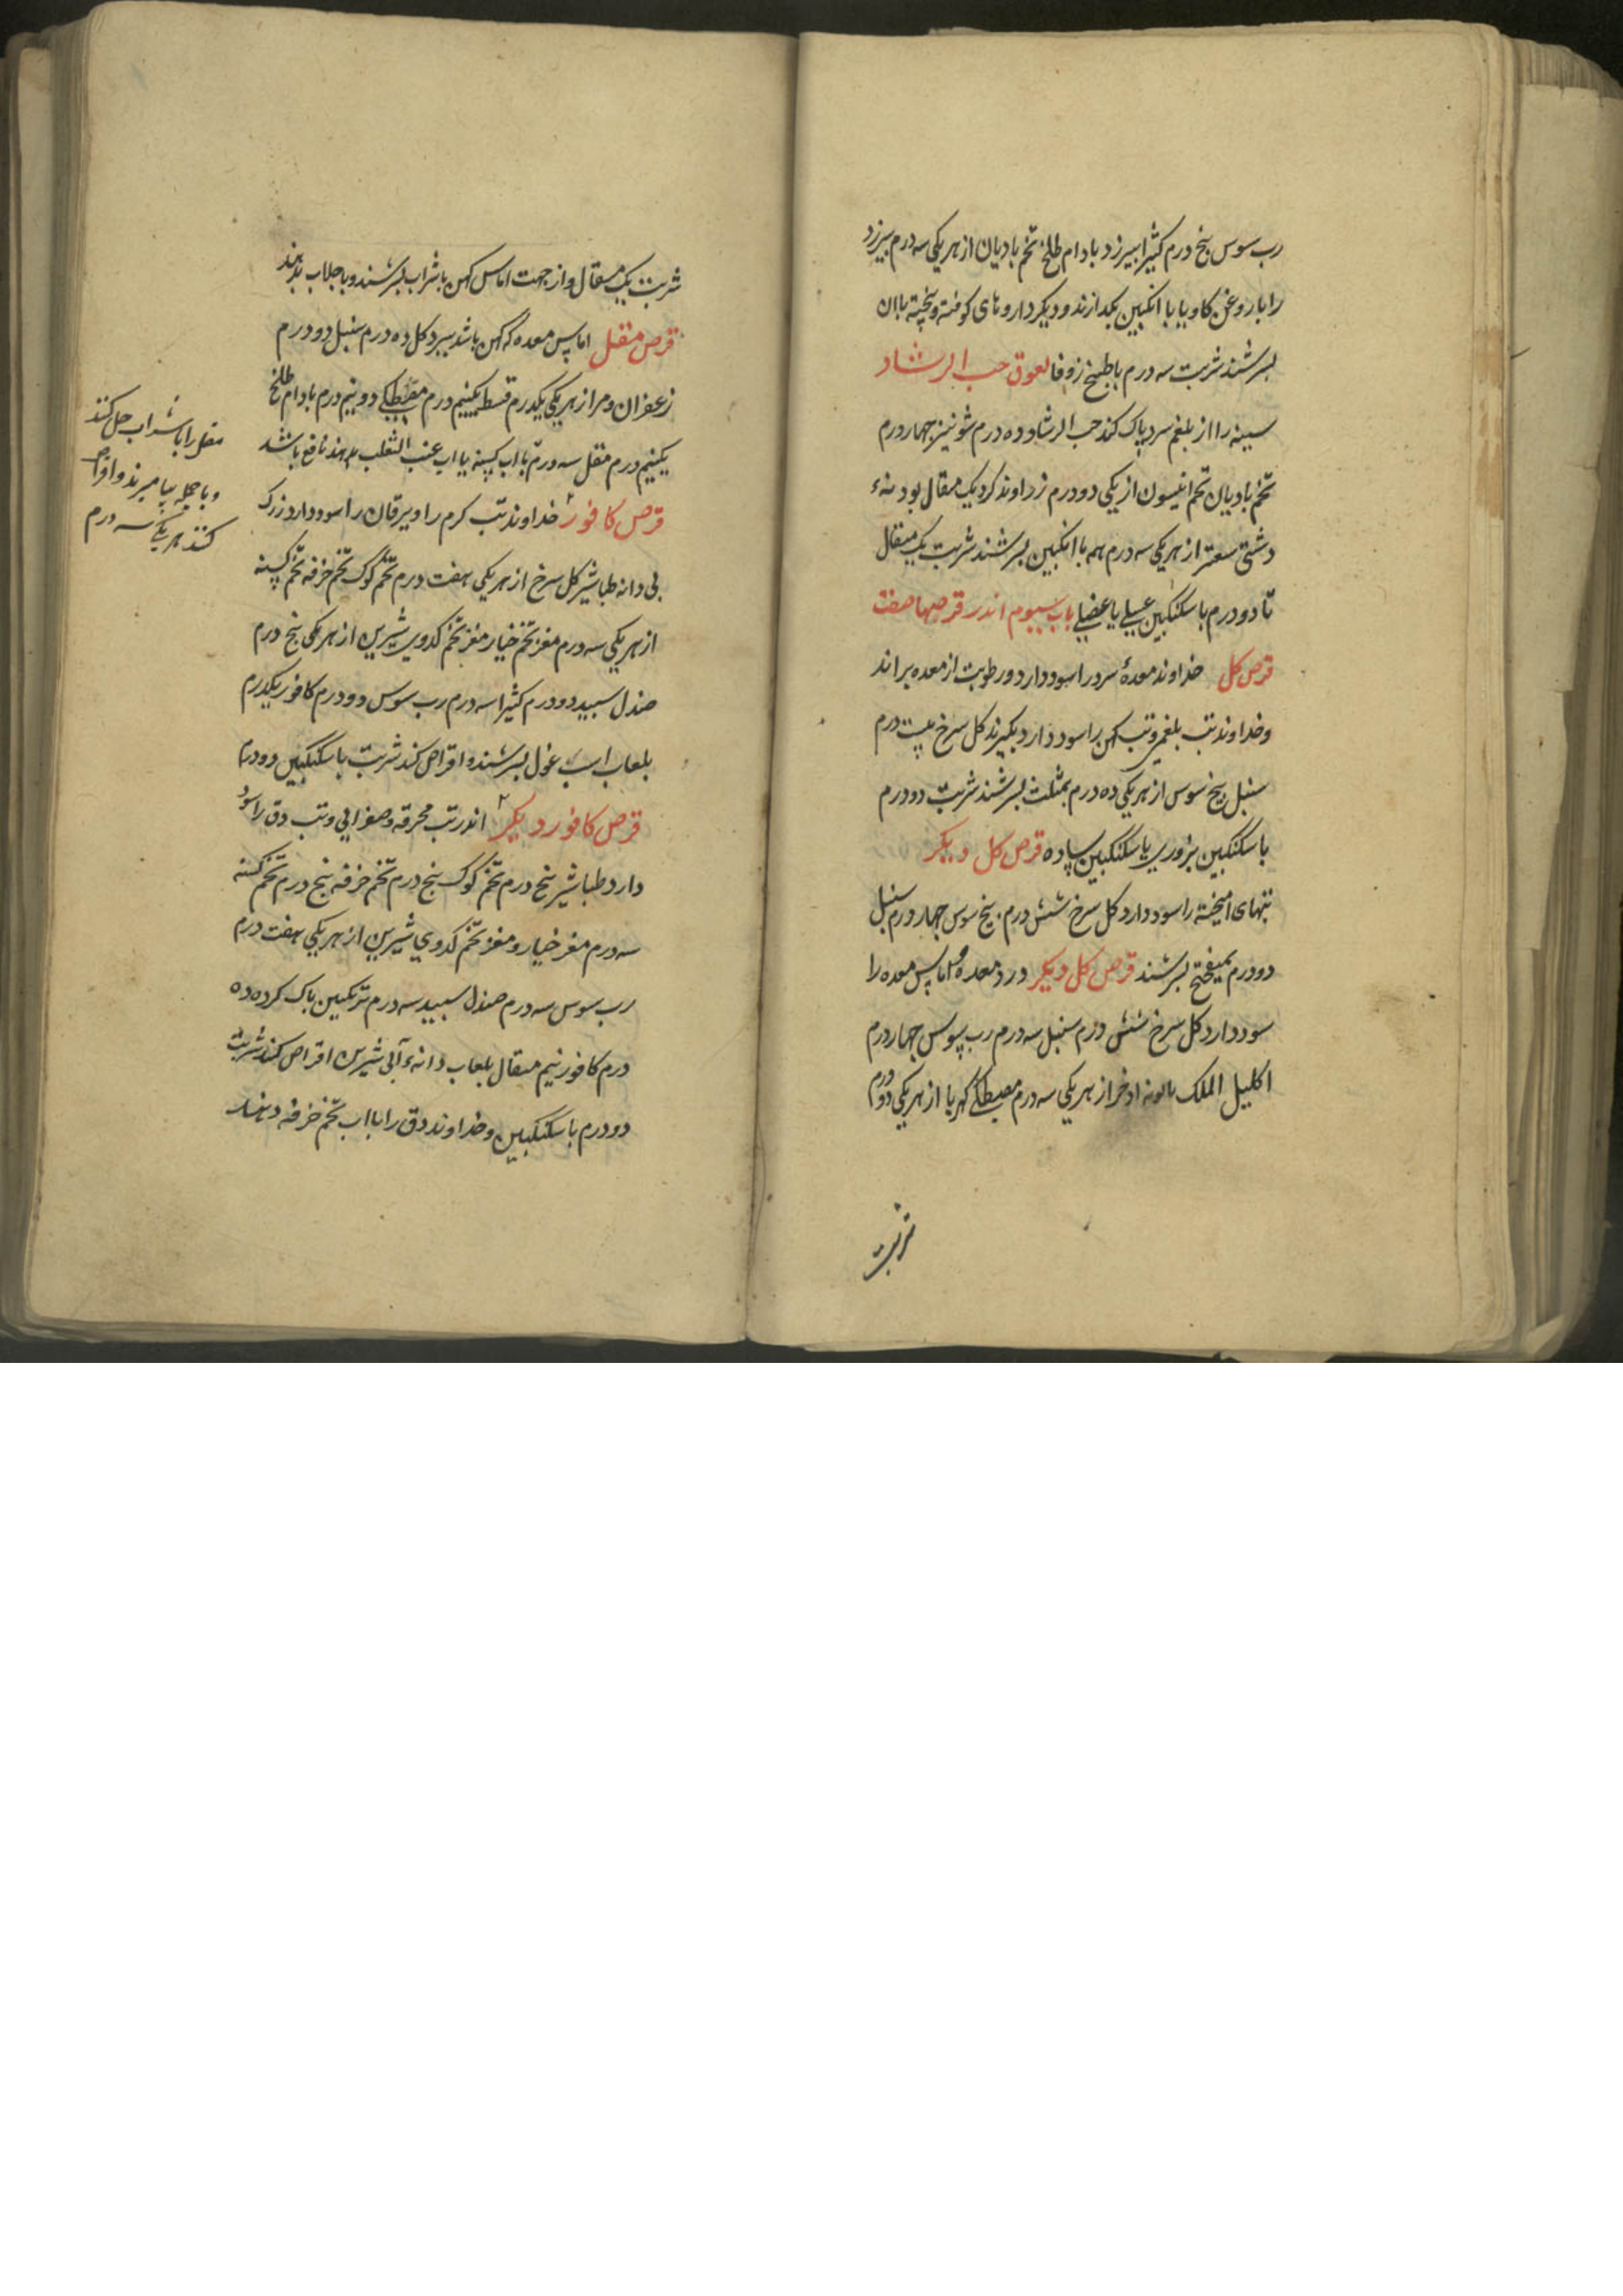 رب سوس پنج درم کثیرا بیرزد بادام طلخ تخم بادیان از هریکی سه درم بیرزد
را با روغن کاو یا با انکبین بکدازند و دیکر داروهای کوفته و پخته بان
بسرشند شربت سه درم با طبیخ زوفا لعوق حب الرشاد
سینه را از بلغم سرد پاک کند حب الرشاد ده درم شونیز چهار درم
تخم بادیان تخم انیسون از یکی دو درم زراوند کرد یک مثقال بودنهٔ
دشتی سعتر از هریکی سه درم همه با انکبین بسرشند شربت یک مثقال
تا دو درم با سکنکبین عسلی یا عنصلی باب سیوم اندر قرصها صفت
قرص کل خداوند معدهٔ سرد را سود دارد و رطوبت از معده براند
و خداوند تب بلغمی و تب کهن را سود دارد بکیرند کل سرخ بیست درم
سنبل بیخ سوس از هریکی ده درم بمثلث بسرشند شربت دو درم
با سکنکبین بزوری یا سکنکبین ساده قرص کل دیکر
تبهای امیخته را سود دارد کل سرخ شش درم بیخ سوس چهار درم سنبل
دو درم بمیفختج بسرشند قرص کل دیکر درد معده و اماس معده را
سود دارد کل سرخ شش درم سنبل سه درم رب سوس چهار درم
اکلیل الملک بابونه اذخر از هریکی سه درم مصطکی کهربا از هریکی دو درم
شربت
شربت یک مثقال و از جهت اماس کهن با شراب بسرشند و با جلاب بدهند
قرص مقل اماس معده که کهن باشد ببرد کل ده درم سنبل دو درم
زعفران و مر از هریکی یکدرم قسط یکنیم درم مصطکی دو نیم درم بادام طلخ
یکنیم درم مقل سه درم با اب کسنه یا اب عنب الثعلب بدهند نافع باشد
قرص کافور خداوند تب کرم را و یرقان را سود دارد زرک
بی دانه طباشیر کل سرخ از هریکی هفت درم تخم کوک تخم خرفه تخم کسنه
از هریکی سه درم مغز تخم خیار مغز تخم کدوی شیرین از هریکی پنج درم
صندل سبید دو درم کثیرا سه درم رب سوس دو درم کافور یکدرم
بلعاب اسب غول بسرشند و اقراص کند شربت با سکنکبین دو درم
قرص کافور دیکر اندر تب محرقه و صفرایی و تب دق را سود
دارد طباشیر پنج درم تخم کوک پنج درم تخم خرفه پنج درم تخم کسنه
سه درم مغز خیار و مغز تخم کدوی شیرین از هریکی هفت درم
رب سوس سه درم صندل سبید سه درم ترنکبین پاک کرده ده
درم کافور نیم مثقال بلعاب دانهٔ آبی شیرین اقراص کند شربت
دو درم با سکنکبین و خداوند دق را با اب تخم خرفه دهند
مقل را با شراب حل کنند
و با جمله بیامیزند و اقراص
کنند هر یکی سه درم